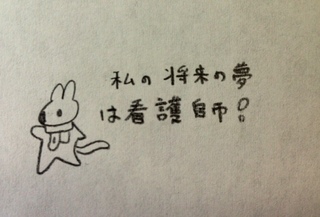 私の将来の夢
は看護師!